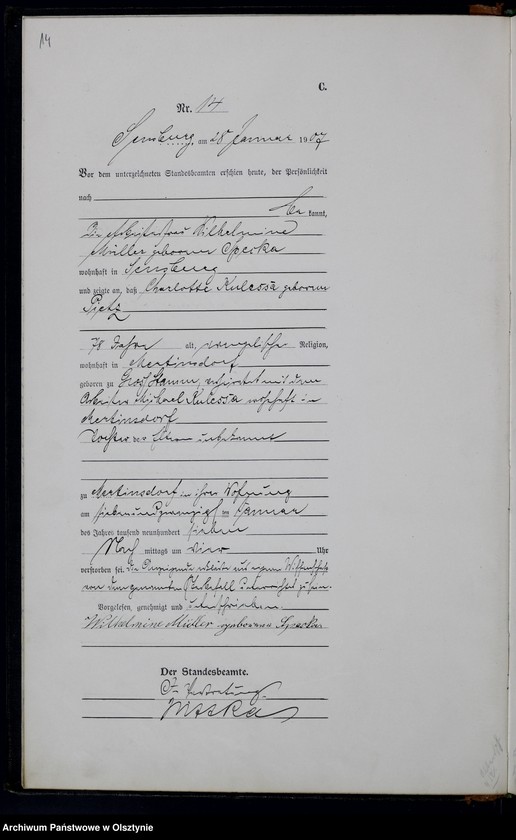 14
C.
Nr. 14
Sensburg am 28 Januar 1907
Vor dem unterzeichneten Standesbeamten erschien heute, der Persönlichkeit
nach
be kannt,
die Arbeiterfrau Wilhelmine
Müller geborene
wohnhaft in Sensburg
und zeigte an, daß Charlotte Kulessa geborene
Pietz
78 Jahre alt, evangelischer Religion,
wohnhaft in Mertinsdorf
geboren zu Groß Stamm, verheiratet mit dem
Arbeiter Michael Kulessa wohnhaft in
Mertinsdorf
Tochter der Eltern unbekannt
zu Mertinsdorf in ihrer Wohnung
am siebenundzwanzigsten Januar
des Jahres tausend neunhundert sieben
Nach mittags um vier Uhr
verstorben sei. Die Anzeigende erklärte aus eigener Wissenschaft
von dem gemeldeten Sterbefall unterrichtet zu sein.
Vorgelesen, genehmigt und unterschrieben.
Wilhelmine Müller geborene
Der Standesbeamte.
In Vertretung
Archiwum Państwowe w Olsztynie